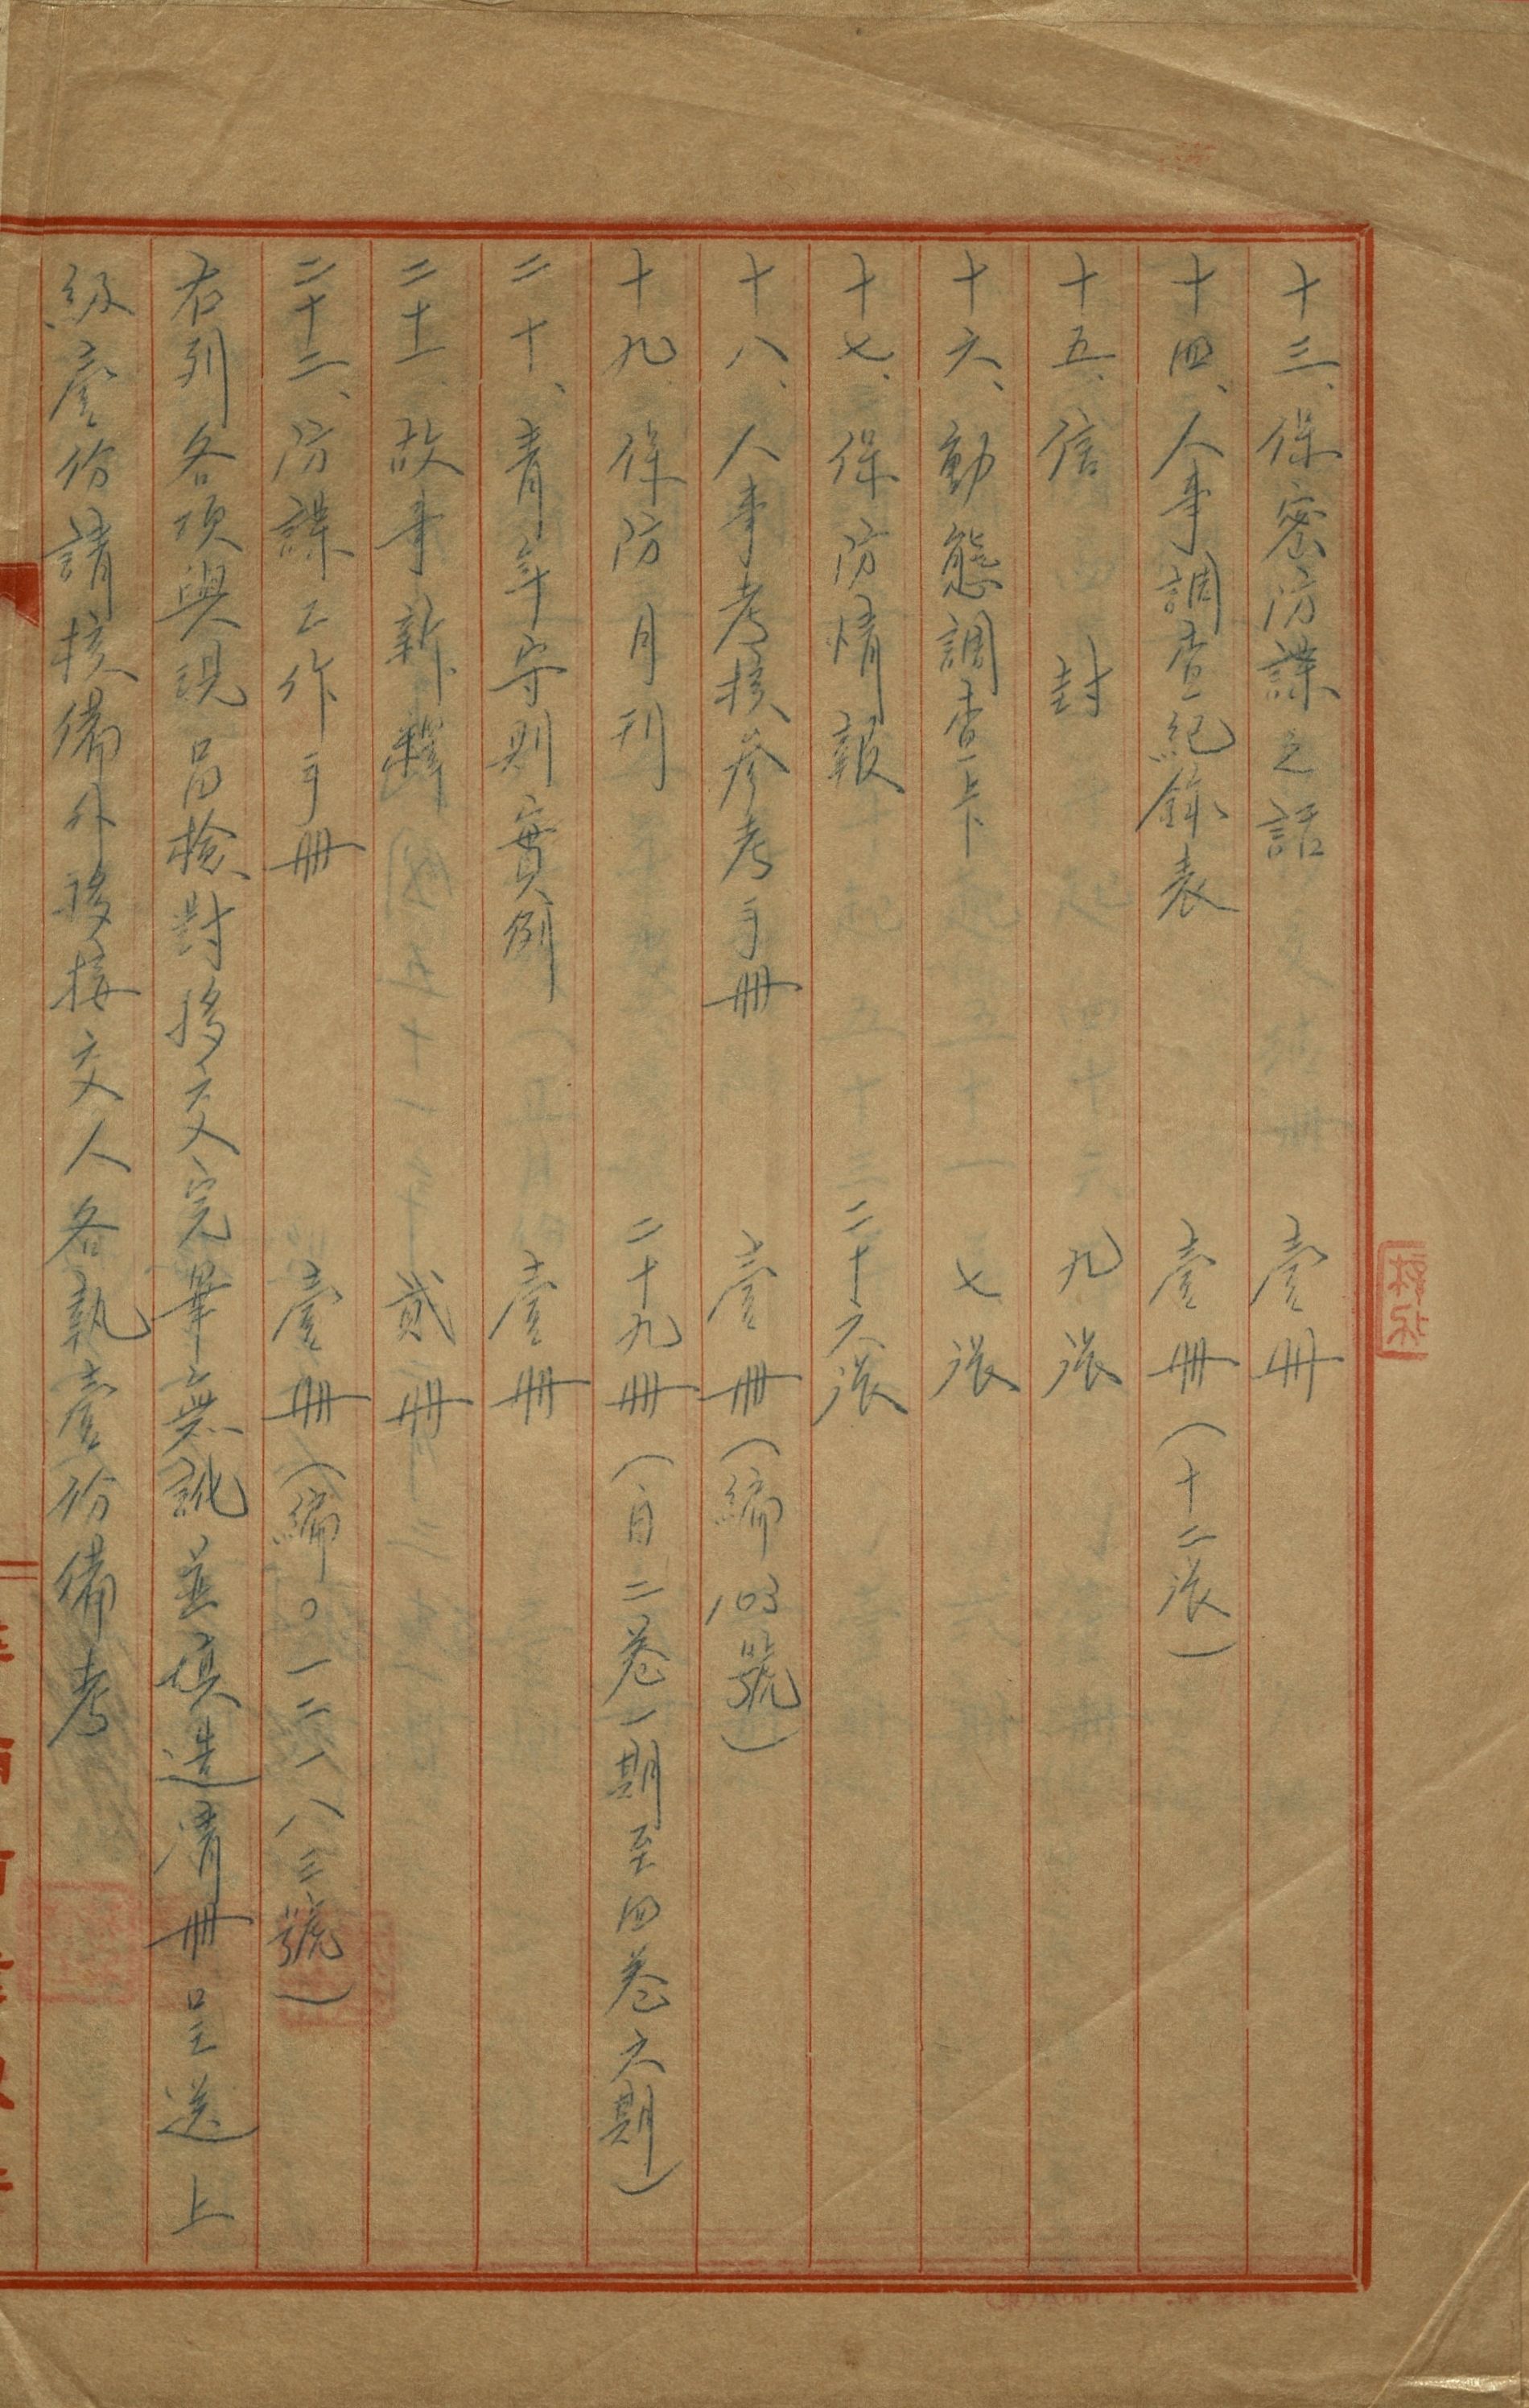 十三、保密防諜之話 壹冊
十四、人事調查紀錄表 壹冊（十二張）
十五、信封 九張
十六、動態調查卡 七張
十七、保防情報 二十六張
十八、人事考核參考手冊 壹冊（編103號）
十九、保防月刊 二十九冊（自二卷一期至四卷六期）
二十、青年守則實例 壹冊
二十一、故事新釋 貳冊
二十二、防諜工作手冊 壹冊（編〇一二一八三號）
右列各項與現品檢對移交完畢無訛並填造清冊呈送上
級壹份請核備外移接交人各執壹份備考